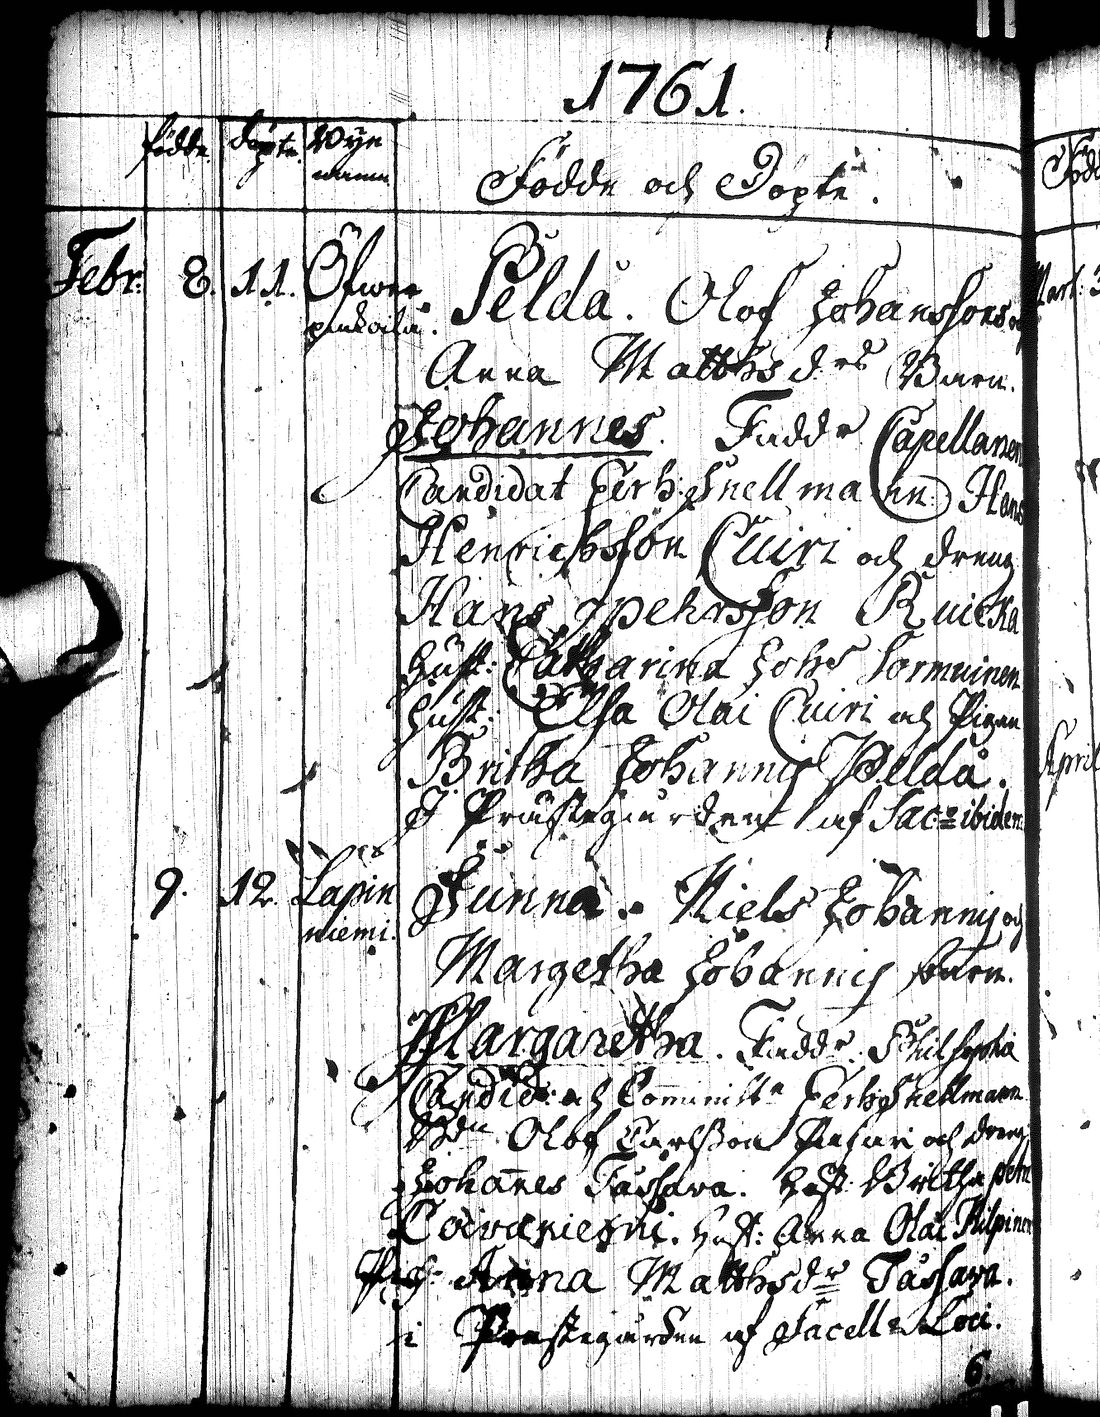 1761.
födde döpte Byenamn
Födde och Döpte.
Febr: 8. 11. Öfwer
Peldå. Olof Johansson och
Anna Matthsdrs Barn.
Johannes. Fadd. Capellanen
Candidat Perh: Snellmann Hans
Henrichsson Cuiri och dreng
Hans Pehrsson Ruicka
hust: Catharina Johs Sormuinen
hust: Elsa Olai Cuiri och Pigan
Britha Johannis Peldå.
I Prästegården af Sac: ibidem
9. 12. Lapin
niemi.
Junna. Niels Johannis och
Margetha Johannis barn.
Margaretha. Fadd. Philosophiæ
Candid: och Perh Snellmann
Bdn Olof Carlsson och dreng
Johanes Tassara. Hust: Britha Pehr
hust: Anna Olai Kilpinen
Pig: Anna Matthsdr Tassara.
i Prestegården af Sacell: Loci.
6.